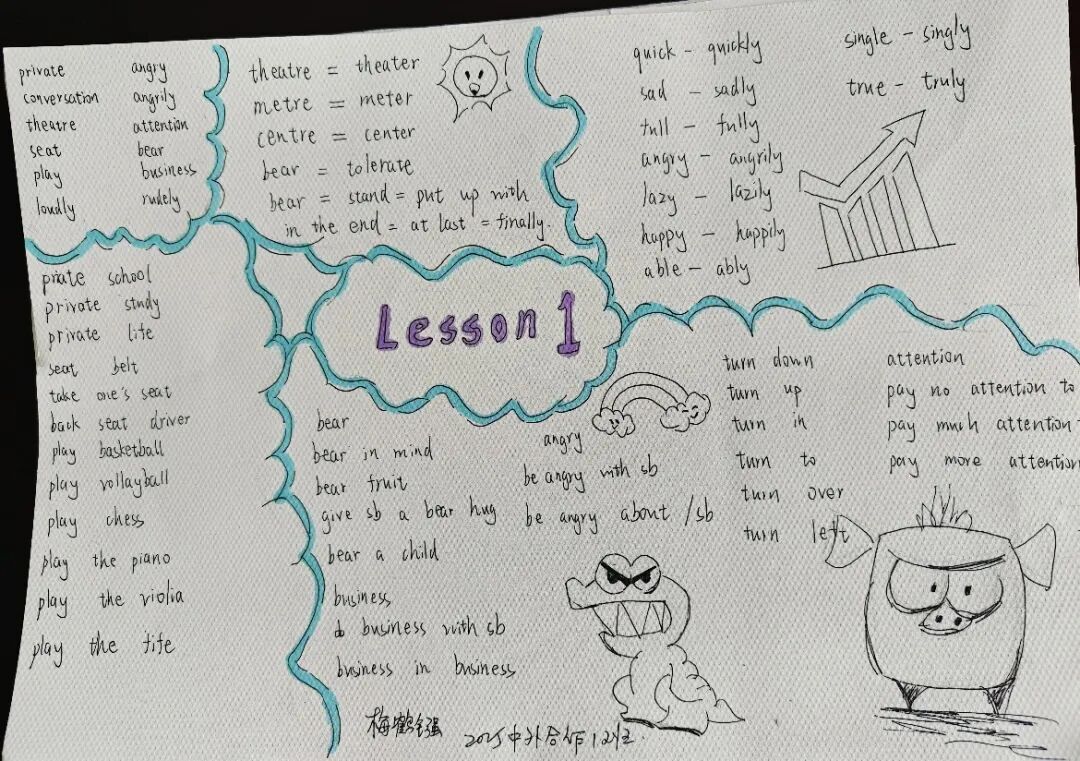 private angry
conversation angrily
theatre attention
seat bear
play business
loudly rudely
theatre = theater
metre = meter
centre = center
bear = tolerate
bear = stand = put up with
in the end = at last = finally.
quick - quickly
sad - sadly
full - fully
angry - angrily
lazy - lazily
happy - happily
able - ably
single - singly
true - truly
Lesson 1
priate school
private study
private life
seat belt
take one's seat
back seat driver
play basketball
play vollayball
play chess
play the piano
play the violia
play the fife
bear
bear in mind
bear fruit
give sb a bear hug
bear a child
business
do business with sb
business in business
angry
be angry with sb
be angry about /sb
turn down
turn up
turn in
turn to
turn over
turn left
attention
pay no attention to
pay much attention
pay more attention
2025中外合作12班